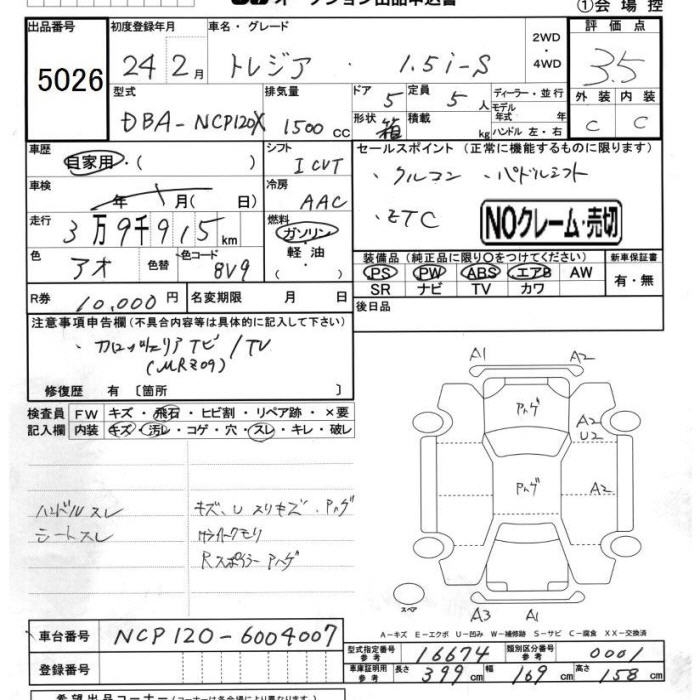 オークション出品申込書
①会場控
出品番号 初度登録年月 車名・グレード 2WD ・ 4WD 評価点
5026 24 2月 トレジア ・ 1.5i-S 3.5
型式 排気量 ドア 定員 ディーラー・並行 外装 内装
DBA-NCP120X 1500cc 5 5人 モデル年式 年 C C
形状 箱 積載 kg ハンドル 左・右
車歴 自家用・( ) シフト ICVT セールスポイント (正常に機能するものに限ります)
車検 年 月( 日) 冷房 AAC ・クルコン ・パドルシフト
走行 3万9千915km 燃料 ガソリン・軽油・( ) ・ETC NOクレーム・売切
色 アオ 色替 色コード 8V9 装備品 (純正品に限り○をつけてください) 新車保証書
PS PW ABS エアB AW 有・無
SR ナビ TV カワ
R券 10,000円 名変期限 月 日 後日品
注意事項申告欄 (不具合内容等は具体的に記入して下さい)
・カロッツェリアナビ/TV
(MRZ09)
修復歴 有 〔箇所 〕
検査員 FW キズ・飛石・ヒビ割・リペア跡・×要
記入欄 内装 キズ・汚レ・コゲ・穴・スレ・キレ・破レ
A1 A2
アトゲ
A2
U2
アトゲ A2
ハンドルスレ キズ、U スリキズ、アトゲ
シートスレ ライトクモリ
Rスポイラーアトゲ
スペア
A3 A1
A-キズ E-エクボ U-凹み W-補修跡 S-サビ C-腐食 XX-交換済
車台番号 NCP120-6004007 型式指定番号 参考 16674 類別区分番号 参考 0001
登録番号 車庫証明用 参考 長さ 399cm 幅 169cm 高さ 158cm
希望出品コーナー(コーナーは各会場により異なります)